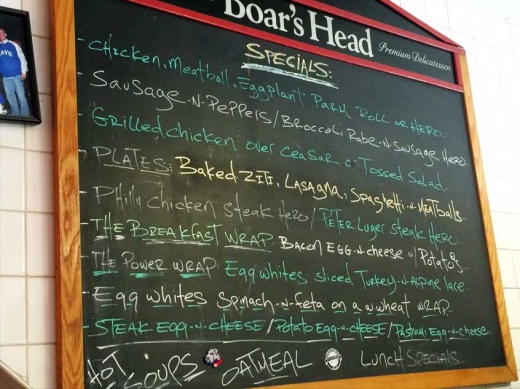 Boar's Head
Premium Delicatessen
SPECIALS:
- Chicken, Meatball, Eggplant Parm Roll or Hero
- Sausage-N-Peppers/Broccoli Rabe-N-Sausage Hero
- Grilled chicken over Ceasar or Tossed Salad
- PLATES: Baked Ziti, Lasagna, Spaghetti-N-Meatballs
- Philly Chicken Steak Hero/Peter Luger Steak Hero
- THE BREAKFAST WRAP: Bacon Egg-N-cheese w/Potatoes
- THE POWER WRAP: Egg whites sliced Turkey-N-Alpine lace
- Egg whites Spinach-N-feta on a wwheat WRAP
- STEAK Egg-N-CHEESE/Potato Egg-N-CHEESE/Pastrami Egg-N-cheese
HOT SOUPS OATMEAL Lunch Specials